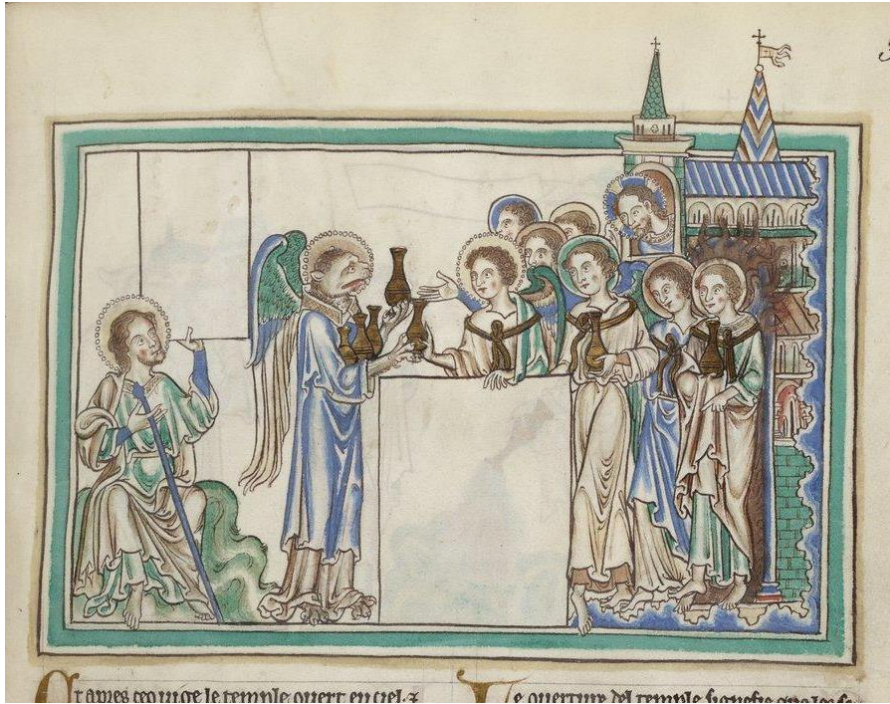 Et apres ceo vi ge le temple overt en ciel. ⁊
Le overture del temple signefie qe les se